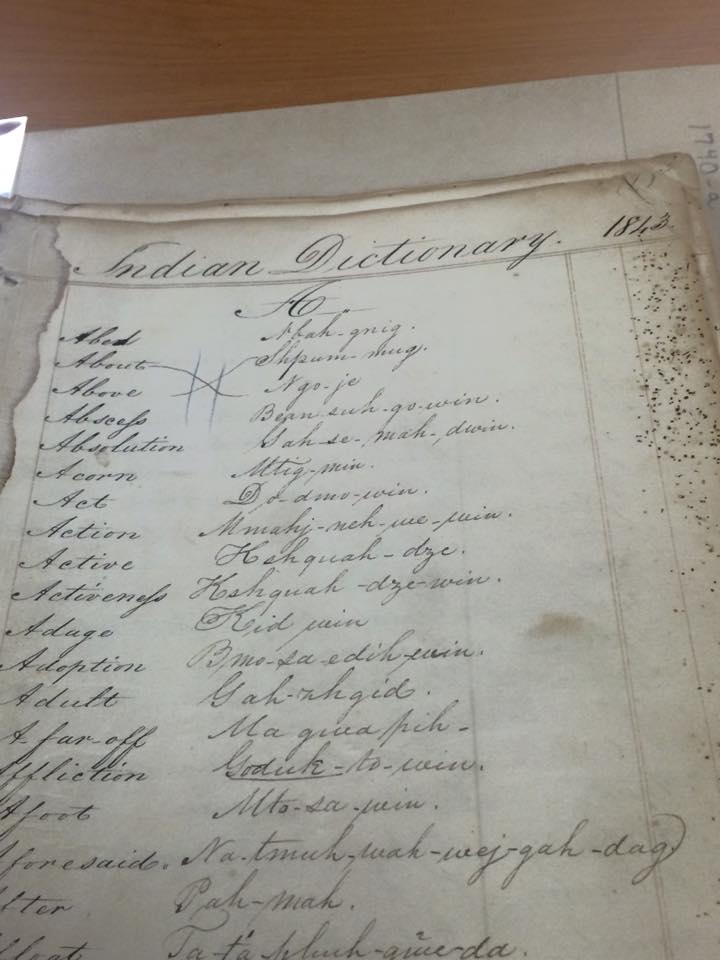 1740-a
Indian Dictionary. 1843
A
Abed Nbah-gnig.
About Shpum-mug.
Above Ngo-je
Abscess Bean-suh-go-win.
Absolution Gah-se-mah-dwin.
Acorn Mtig-min.
Act Do-dmo-win.
Action Mmahj-neh-we-win.
Active Kshquah-dze.
Activeness Kshquah-dze-win.
Adage Kid win
Adoption Bmo-sa-edih-win.
Adult Gah-zhgid.
A far-off Ma gwa pih-
ffliction Goduk-to-win.
Afoot Mto-sa-win.
foresaid. Na-tmuh-wah-wej-gah-dag
fter Pah-mah.
float